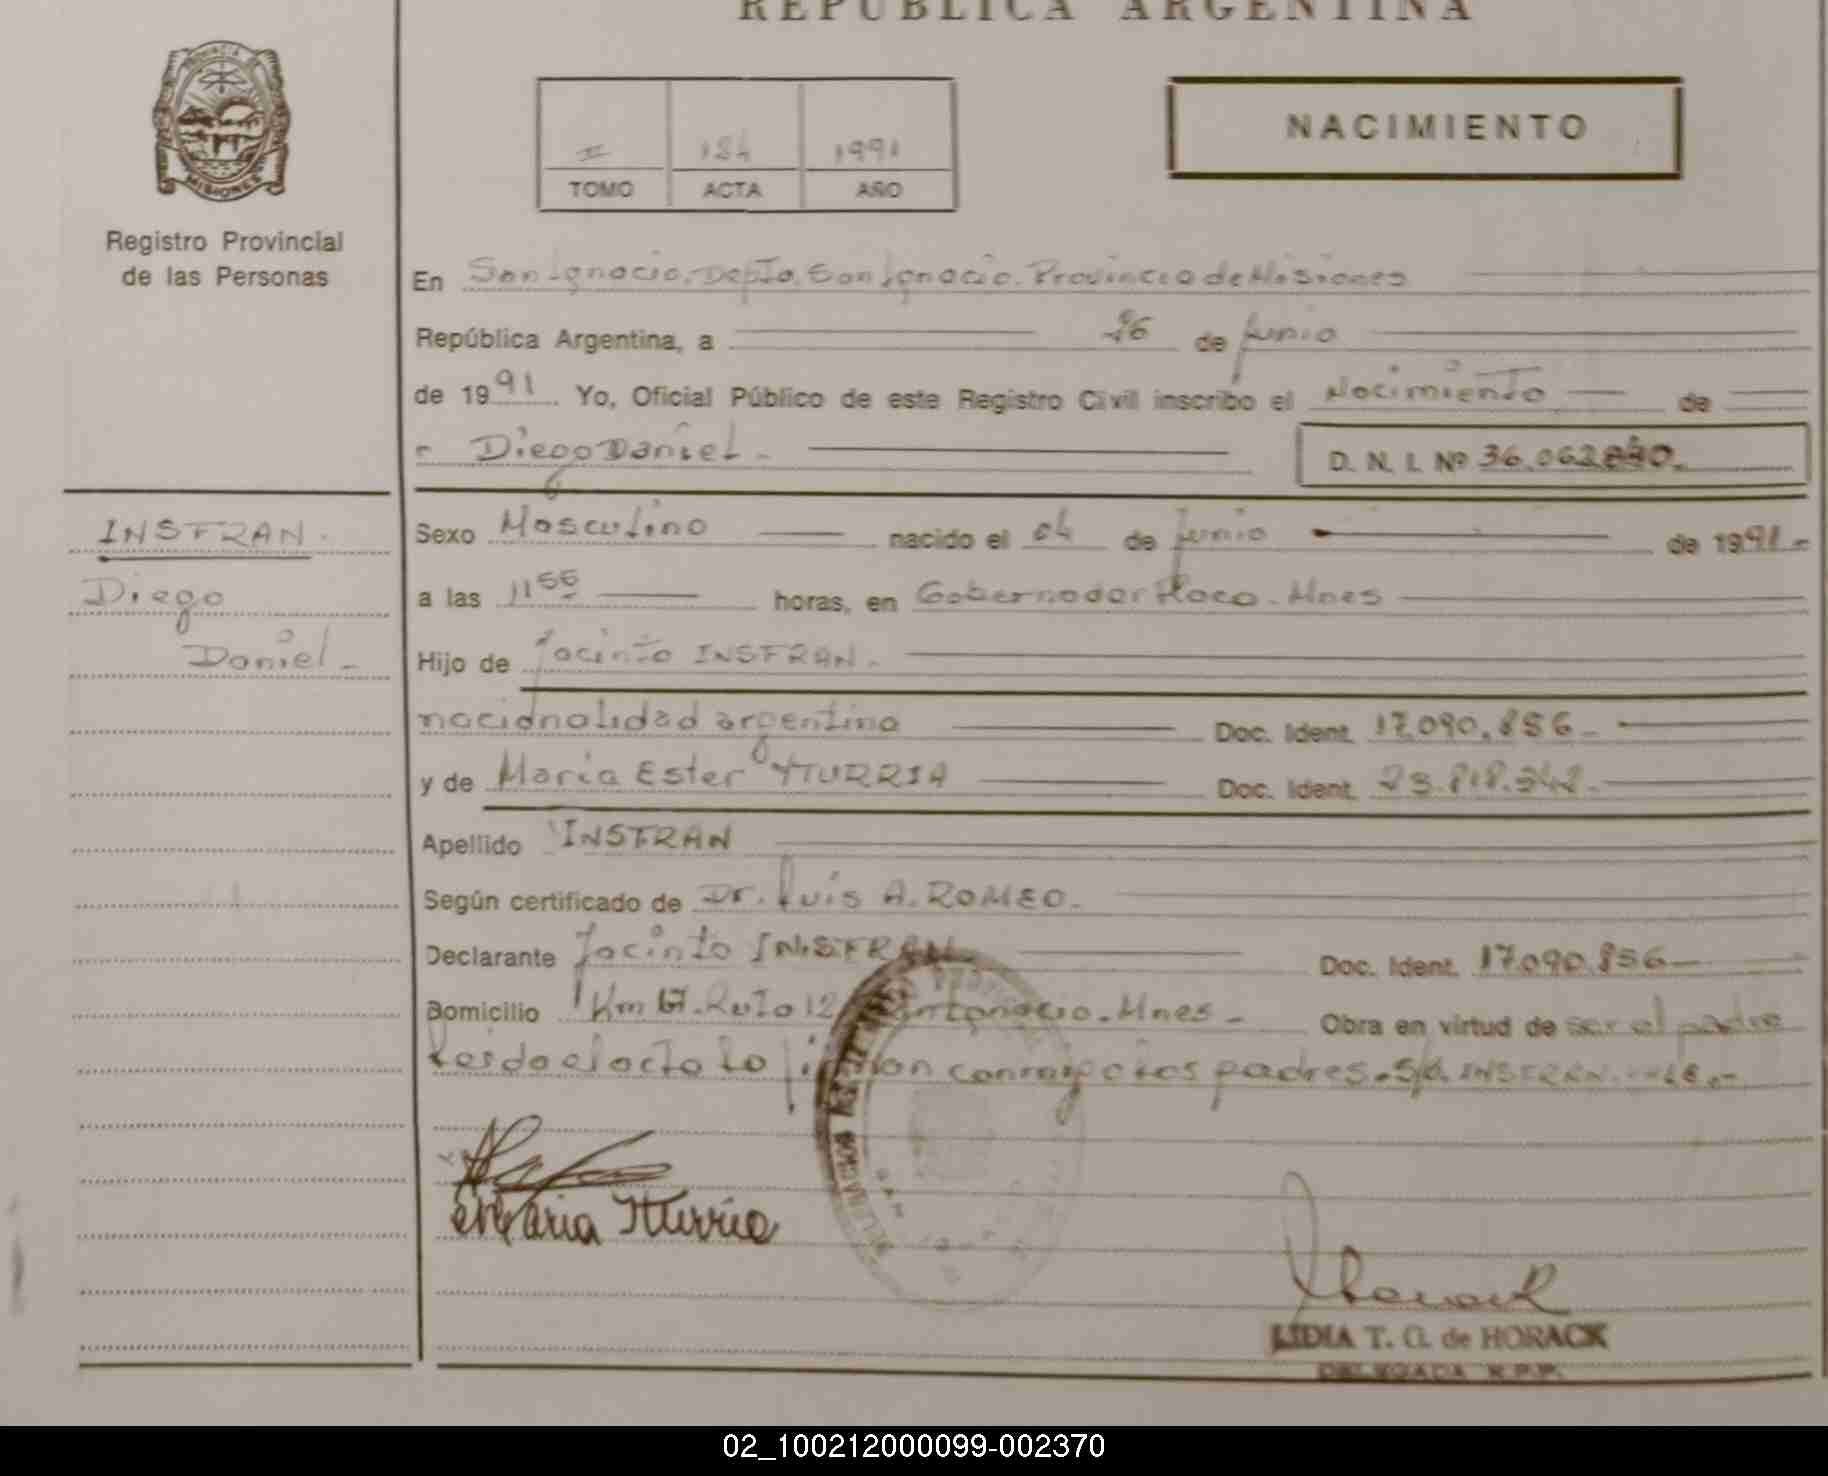 REPUBLICA ARGENTINA
PROVINCIA DE
MISIONES
Registro Provincial
de las Personas
II 184 1991
TOMO ACTA AÑO
NACIMIENTO
En San Ignacio. Depto. San Ignacio. Provincia de Misiones
República Argentina, a 26 de Junio
de 1991. Yo, Oficial Público de este Registro Civil inscribo el Nacimiento de
Diego Daniel.
D. N. I. Nº 36.062.
INSFRAN.
Diego
Daniel
Sexo Masculino nacido el 04 de Junio de 1991
a las 11 55 horas, en Gobernador Roca. Mnes
Hijo de Jacinto INSFRAN.
nacionalidad argentina Doc. Ident. 17.090.856
y de María Ester YTURRIA Doc. Ident. 23.818.342
Apellido INSFRAN
Según certificado de Dr. Luis A. ROMEO.
Declarante Jacinto INSFRAN Doc. Ident. 17.090.856
Domicilio Km Ruta 12 San Ignacio. Mnes. Obra en virtud de ser el padre
Leida el acta la firman conmigo los padres. S/b. INSFRAN.
Maria Iturria
LIDIA T. G. de HORACK
DELEGADA R.P.P.
02_100212000099-002370